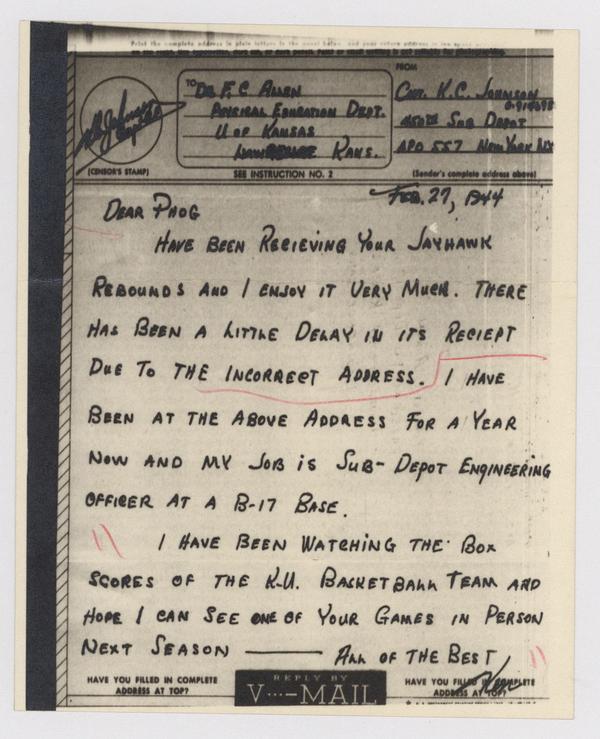 Print the complete address in plain letters in the panel below, and your return address in
TO
DR F.C ALLEN
PHYSICAL EDUCATION DEPT.
U OF KANSAS
KANS.
FROM
CAPT. K.C. JOHNSON
450TH SUB DEPOT
APO 557 NEW YORK NY
(CENSOR'S STAMP)
SEE INSTRUCTION NO. 2
(Sender's complete address above)
FEB. 27, 1944
DEAR PHOG
HAVE BEEN RECIEVING YOUR JAYHAWK
REBOUNDS AND I ENJOY IT VERY MUCH. THERE
HAS BEEN A LITTLE DELAY IN ITS RECIEPT
DUE TO THE INCORRECT ADDRESS. I HAVE
BEEN AT THE ABOVE ADDRESS FOR A YEAR
NOW AND MY JOB IS SUB-DEPOT ENGINEERING
OFFICER AT A B-17 BASE.
I HAVE BEEN WATCHING THE BOX
SCORES OF THE K.U. BASKETBALL TEAM AND
HOPE I CAN SEE ONE OF YOUR GAMES IN PERSON
NEXT SEASON — ALL OF THE BEST,
Ken
HAVE YOU FILLED IN COMPLETE
ADDRESS AT TOP?
REPLY BY
V···—MAIL
HAVE YOU FILLED IN COMPLETE
ADDRESS AT TOP?